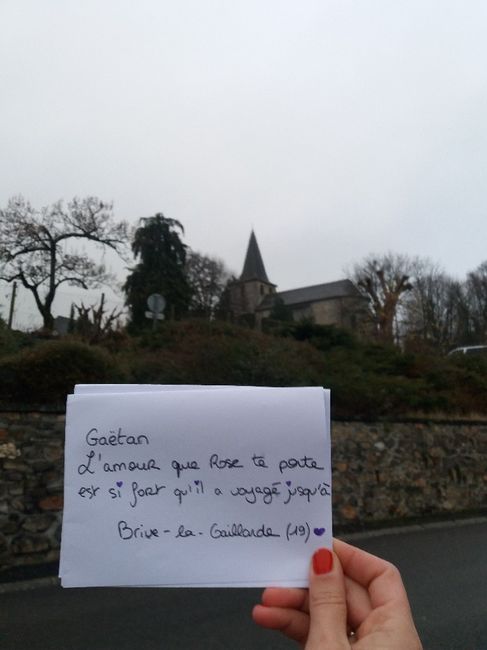 Gaëtan
L'amour que Rose te porte
est si fort qu'il a voyagé jusqu'à
Brive-la-Gaillarde (19) 💜